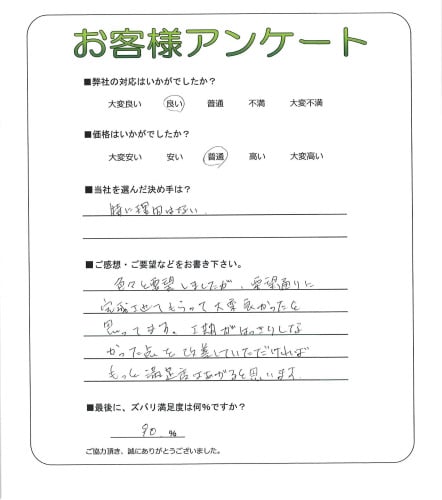 お客様アンケート
■弊社の対応はいかがでしたか？
大変良い 良い 普通 不満 大変不満
■価格はいかがでしたか？
大変安い 安い 普通 高い 大変高い
■当社を選んだ決め手は？
特に理由はない
■ご感想・ご要望などをお書き下さい。
色々と要望しましたが、要望通りに
完成させてもらって大変良かったと
思ってます。工期がはっきりしな
かった点を改善していただければ
もっと満足度はあがると思います
■最後に、ズバリ満足度は何％ですか？
90 ％
ご協力頂き、誠にありがとうございました。